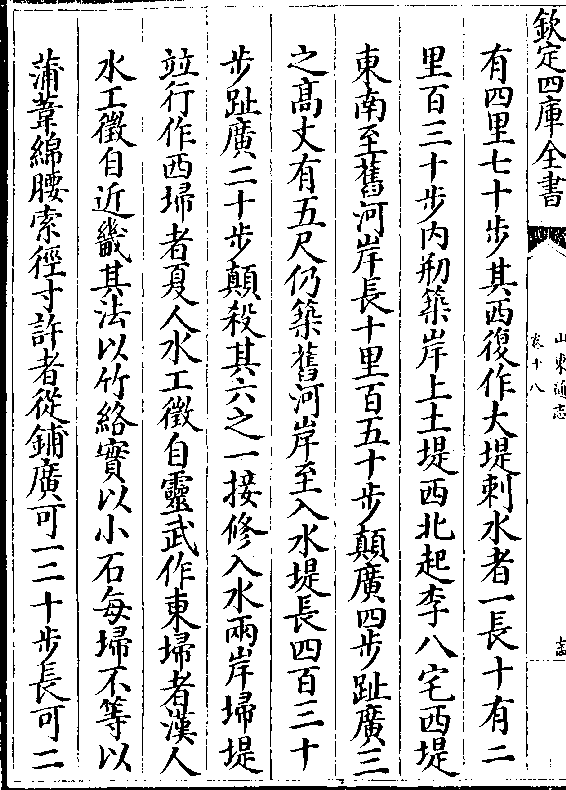 欽定四庫全書
山東通志
卷十八
有四里七十步其西復作大堤刺水者一長十有二
里百三十步内剏築岸上土堤西北起李八宅西堤
東南至舊河岸長十里百五十步顛廣四步趾廣三
之髙丈有五尺仍築舊河岸至入水堤長四百三十
步趾廣二十步顛殺其六之一接修入水兩岸埽堤
竝行作西埽者夏人水工徵自靈武作東埽者漢人
水工徵自近畿其法以竹絡實以小石每埽不等以
蒲葦綿腰索徑寸許者從鋪廣可一二十步長可二